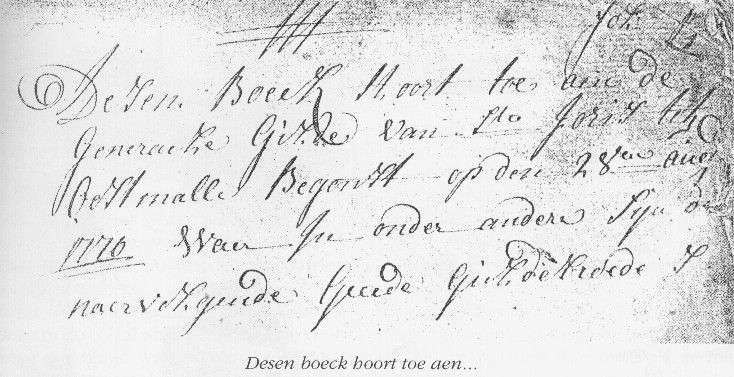 Desen Boeck Hoort toe aen de
Generaele Gilde van Ste Joris tot
Oostmalle Begonst op den 28en
1776 Waer In onder andere Syn
naervolgende Gilde
Desen boeck hoort toe aen...